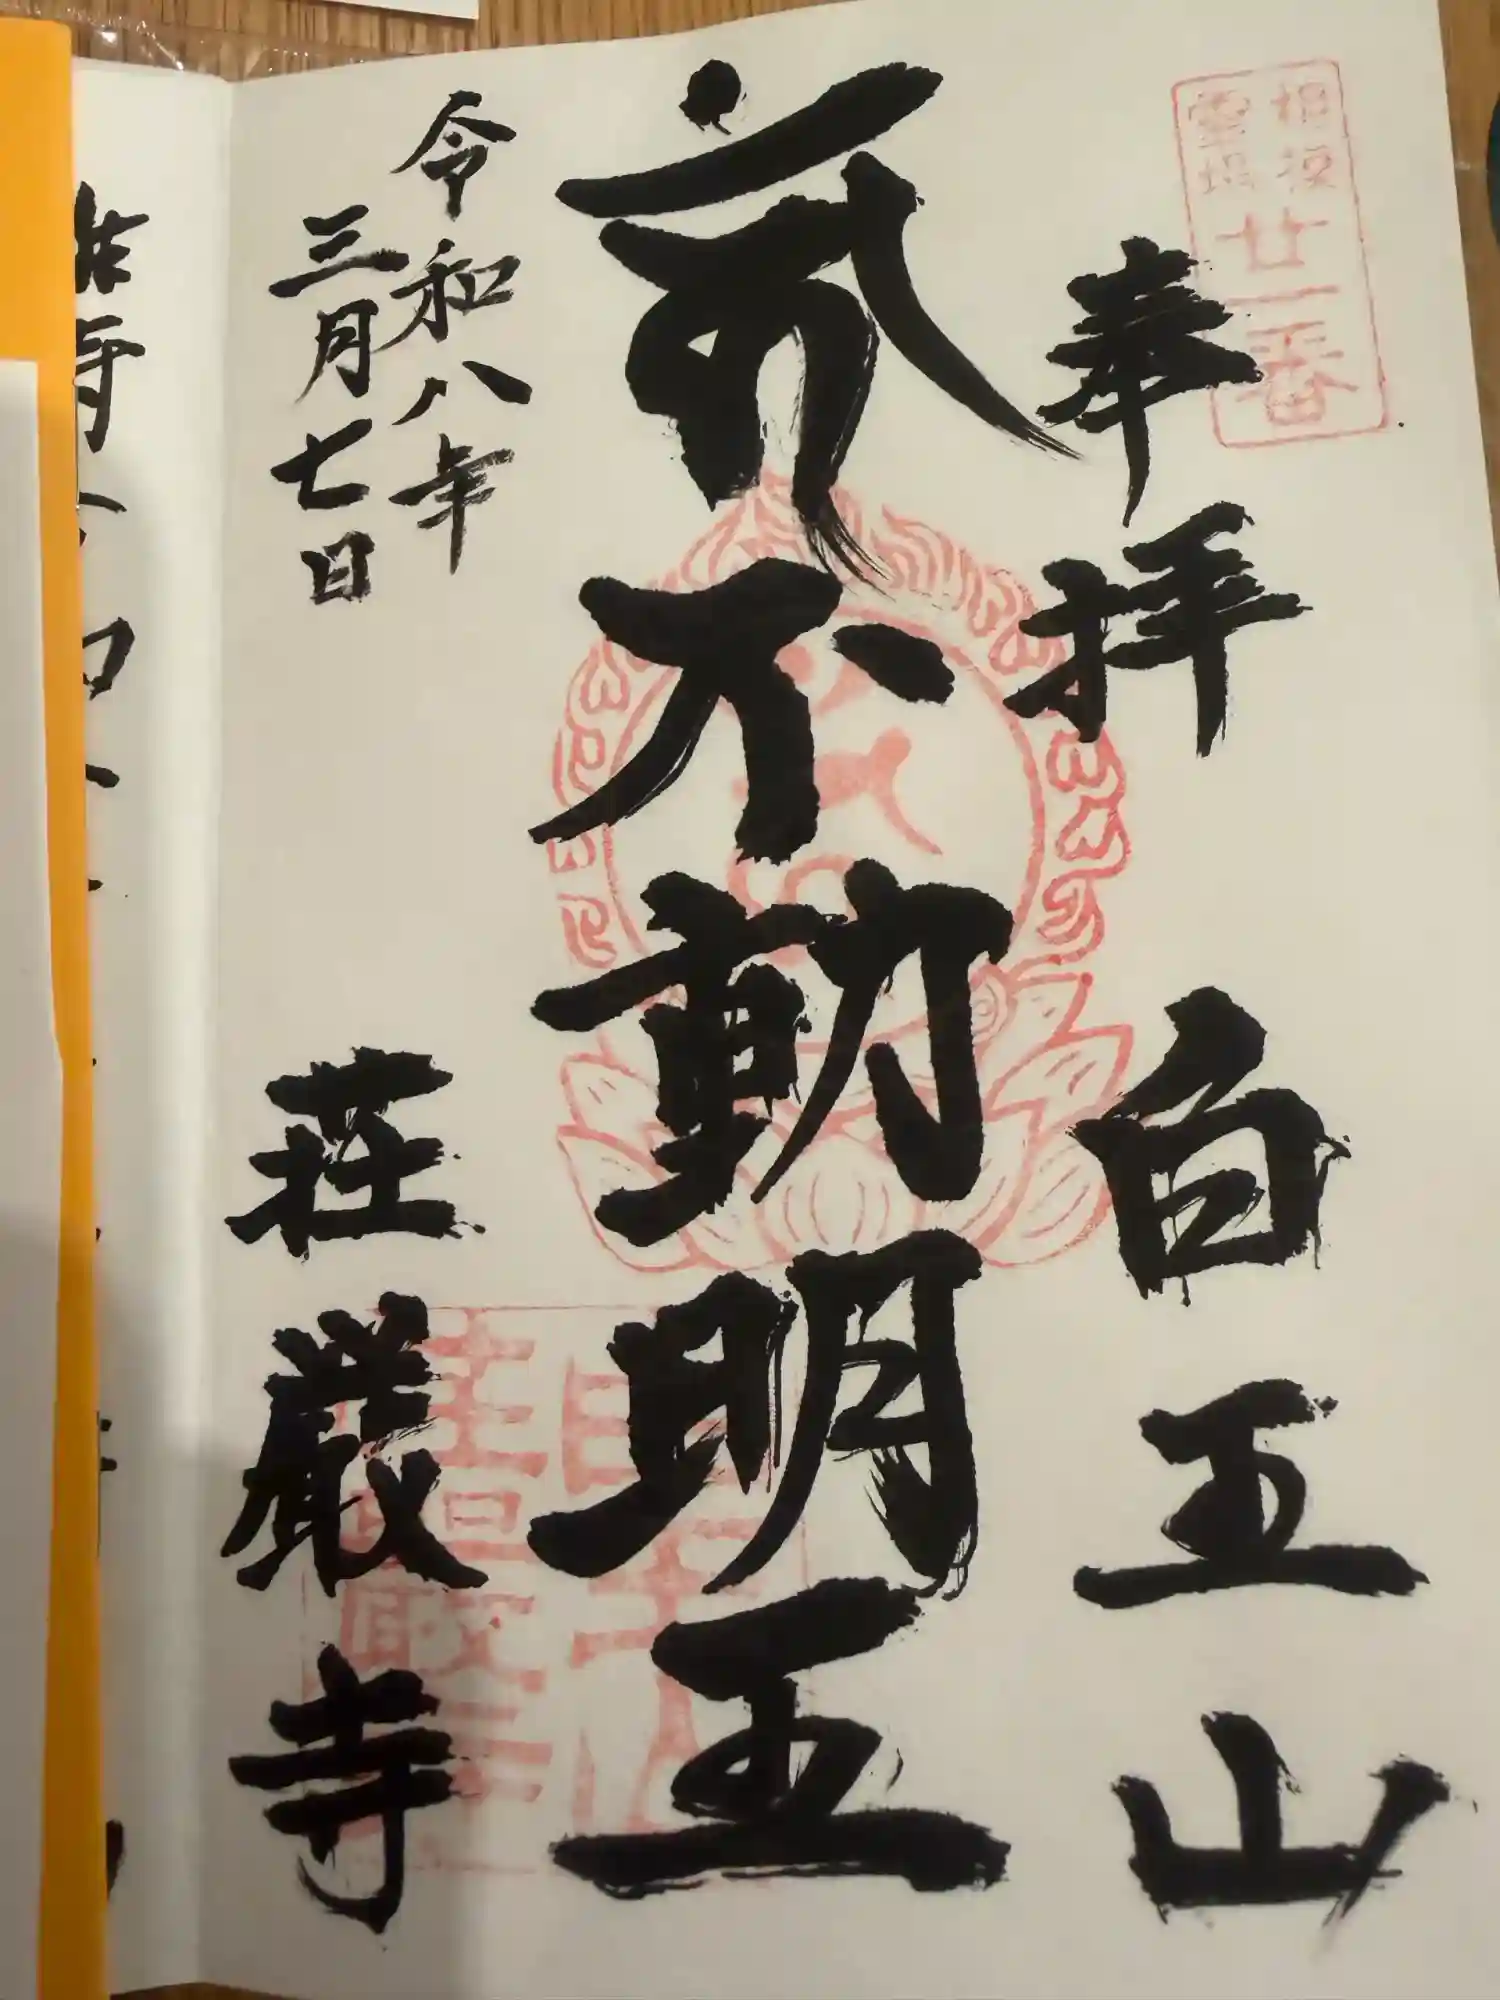 廿一番
奉拝
白王山
不動明王
令和八年
三月七日
荘厳寺